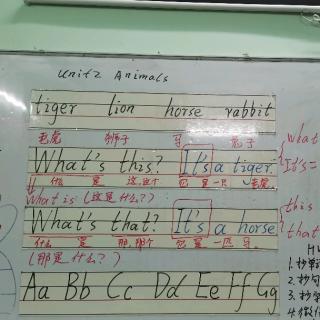 Unit2 Animals
tiger lion horse rabbit
老虎 狮子 马 兔子
What's this? It's a tiger.
什么 是 这,这个 它 是 一只 老虎
What is (这是什么?)
What's that? It's a horse
什么 是 那,那个 它是 一匹 马.
(那是什么?)
Aa Bb Cc Dd Ee Ff Gg
What
It's =
this
that
1.抄
2.抄
3.抄
4.